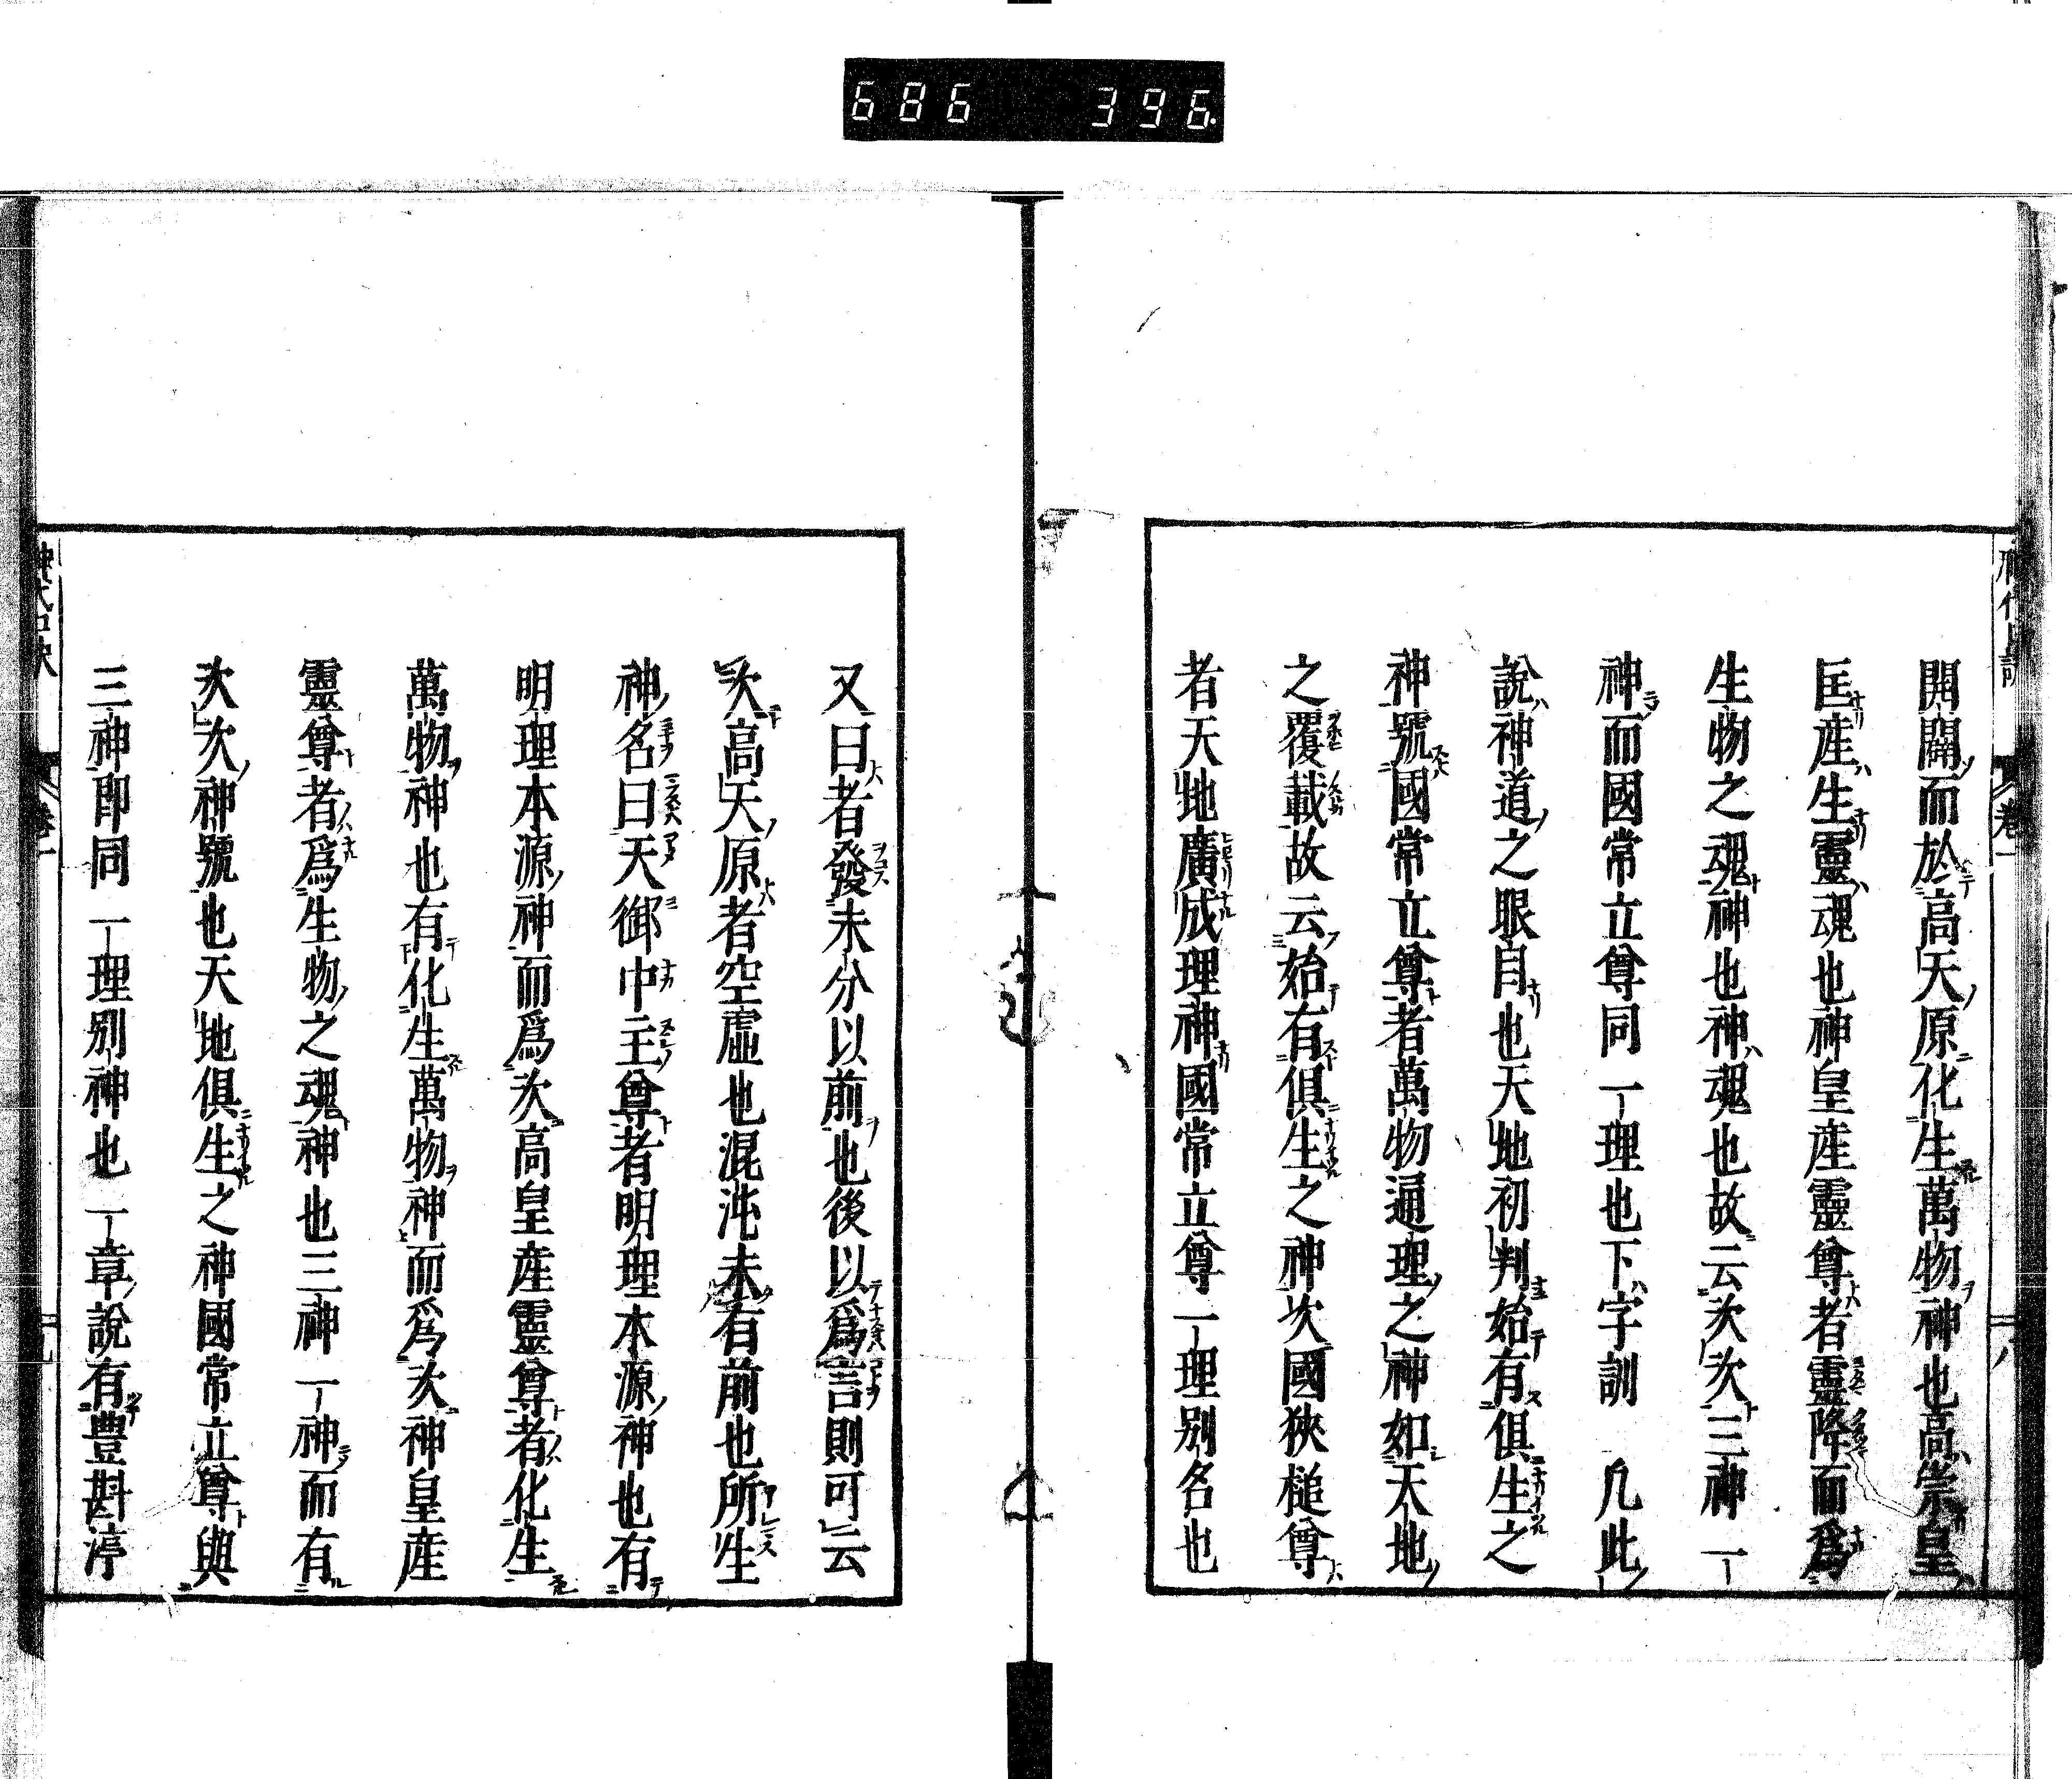 686 396
開闢而於高天原化生萬物神也高崇皇
匡産生靈魂也神皇産靈尊者靈降而爲
生物之魂神也神魂也故云次次三神一
神而國常立尊同一理也下字訓 凡此
說神道之眼目也天地初判始有俱生之
神號國常立尊者萬物通理之神如天地
之覆載故云始有俱生之神次國狹槌尊
者天地廣成理神國常立尊一理別名也
又曰者發未分以前也後以爲言則可云
次高天原者空虛也混沌未有前也所生
神名曰天御中主尊者明理本源神也有
明理本源神而爲次高皇産靈尊者化生
萬物神也有化生萬物神而爲次神皇産
靈尊者爲生物之魂神也三神一神而有
次次神號也天地俱生之神國常立尊與
三神即同一理別神也一章說有豐斟渟